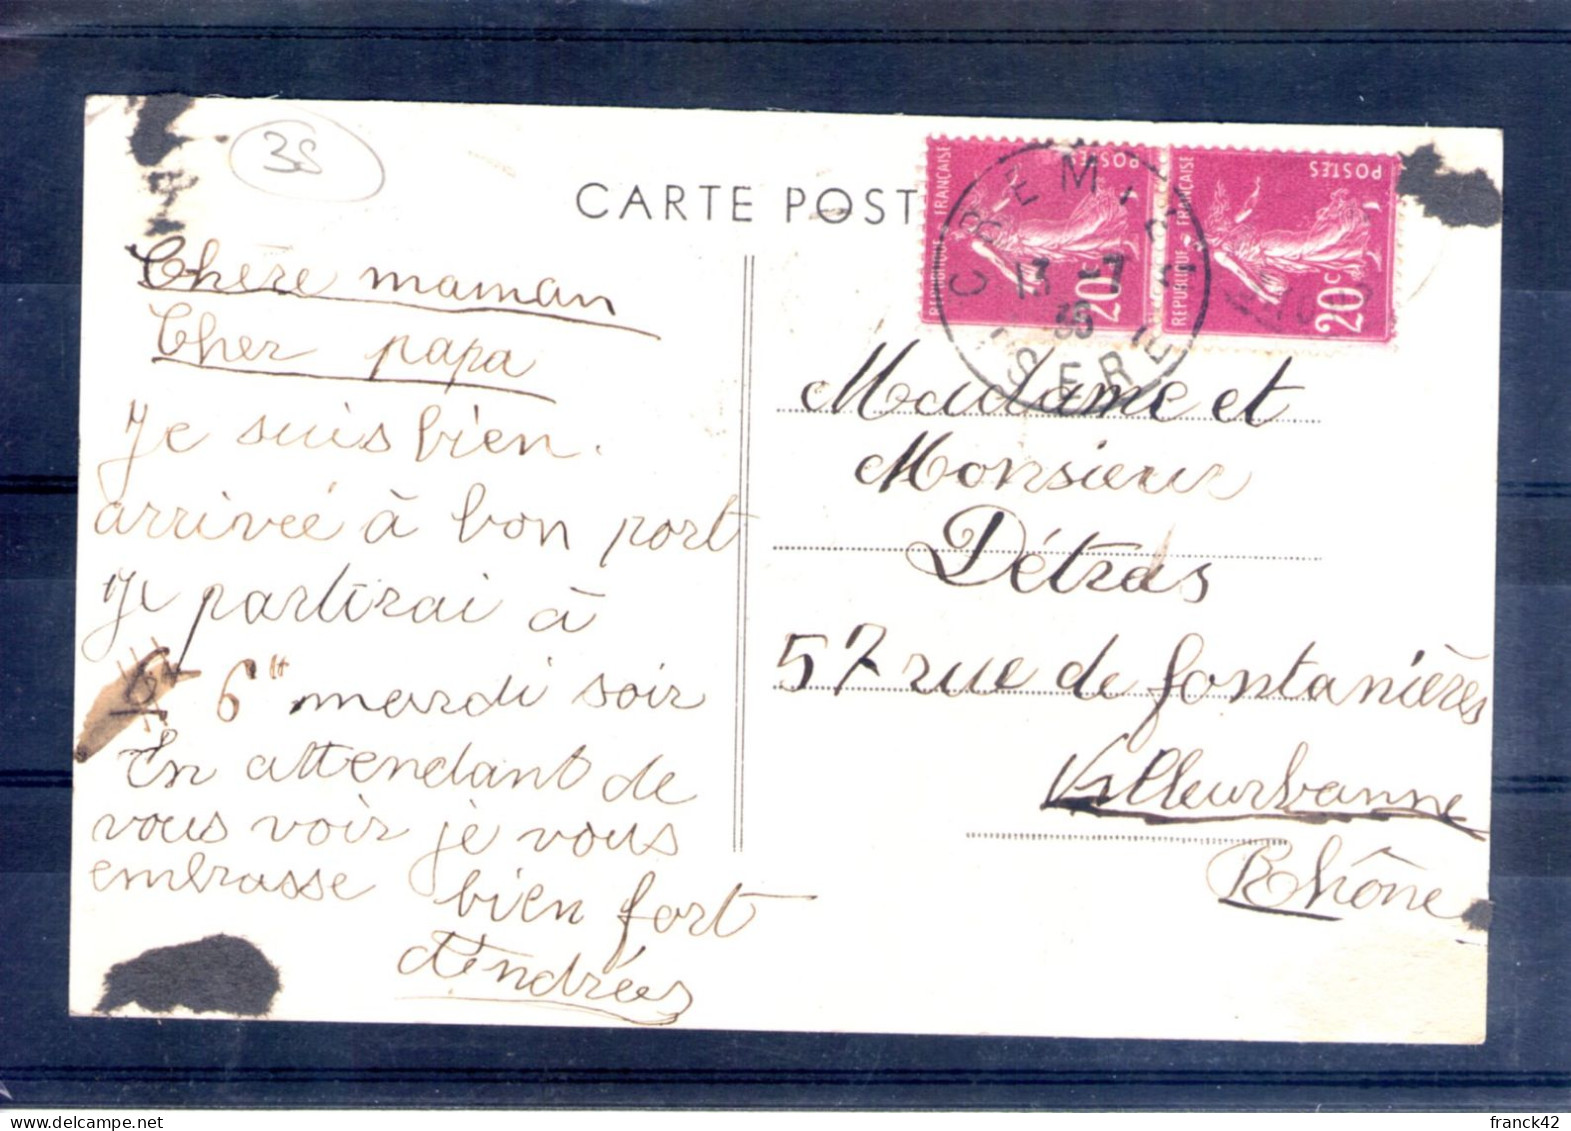 38
CARTE POST
RÉPUBLIQUE FRANÇAISE
POSTES
20c
RÉPUBLIQUE FRANÇAISE
POSTES
20c
CREMIEU
13 -7
35
ISERE
Chère maman
Cher papa
Je suis bien
arrivée à bon port
Je partirai à
6H 6H mardi soir
En attendant de
vous voir je vous
embrasse bien fort
Andrées
Madame et
Monsieur
Détras
57 rue de fontanières
Villeurbanne
Rhône
franck42